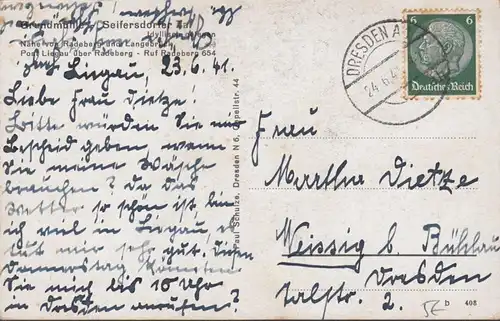 Grundmühle, Seifersdorfer Tal
Idyllisch gelegen
Nähe von Radeberg und Langebrück
Post Liegau über Radeberg - Ruf Radeberg 654
Liegau, 23.6.41.
Liebe Frau Dietze!
Bitte würden Sie mir
Bescheid geben, wenn
Sie meine Wäsche
brauchen? Da das
Wetter so schön ist, bin
ich viel in Liegau, es
tut mir sehr gut. Diesen
Donnerstag könnten
Sie mich bis 10 Uhr
in Dresden anrufen?
Paul Schulze, Dresden N 6, Capellstr. 44
DRESDEN A
24.6.4
6 6
Deutsches Reich
Frau
Martha Dietze
Weissig b. Bühlau
Dresden
Talstr. 2.
D 408